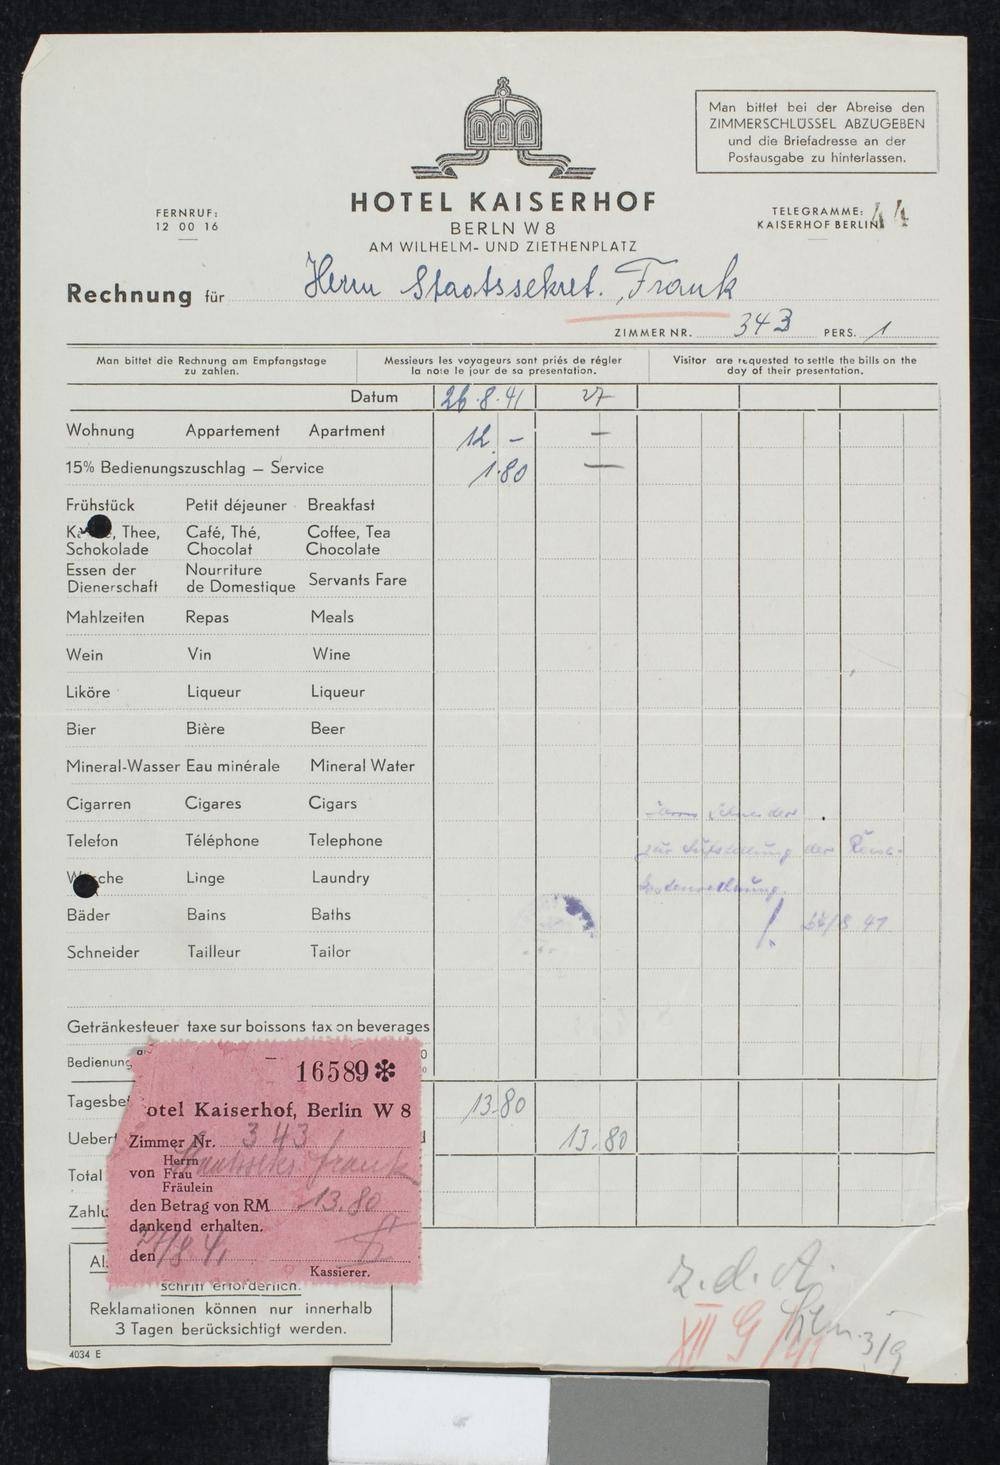 Man bittet bei der Abreise den
ZIMMERSCHLÜSSEL ABZUGEBEN
und die Briefadresse an der
Postausgabe zu hinterlassen.
HOTEL KAISERHOF
BERLN W 8
AM WILHELM- UND ZIETHENPLATZ
FERNRUF:
12 00 16
TELEGRAMME:
KAISERHOF BERLIN
44
Rechnung für Herrn Staatssekret. Frank
ZIMMER NR. 343 PERS. 1
Man bittet die Rechnung am Empfangstage
zu zahlen.
Messieurs les voyageurs sont priés de régler
la note le jour de sa presentation.
Visitor are requested to settle the bills on the
day of their presentation.
Datum 26.8.41 27
Wohnung Appartement Apartment 12.- —
15% Bedienungszuschlag — Service 1.80 —
Frühstück Petit déjeuner Breakfast
Thee, Café, Thé, Coffee, Tea
Schokolade Chocolat Chocolate
Essen der Nourriture
Dienerschaft de Domestique Servants Fare
Mahlzeiten Repas Meals
Wein Vin Wine
Liköre Liqueur Liqueur
Bier Bière Beer
Mineral-Wasser Eau minérale Mineral Water
Cigarren Cigares Cigars
Telefon Téléphone Telephone
zur Aufstellung der
Linge Laundry
Bäder Bains Baths
27/8 41
Schneider Tailleur Tailor
Getränkesteuer taxe sur boissons tax on beverages
Bedienung
Tagesbet 13.80
Uebert 13.80
Total
Zahlu
16589*
otel Kaiserhof, Berlin W 8
Zimmer Nr. 343
Herrn
von Frau Staatssekr Frank
Fräulein
den Betrag von RM 13.80
dankend erhalten.
den 27/8 41
Kassierer.
Al
schrift erforderlich.
Reklamationen können nur innerhalb
3 Tagen berücksichtigt werden.
4034 E
z. d. A.
3/9
XII G /41